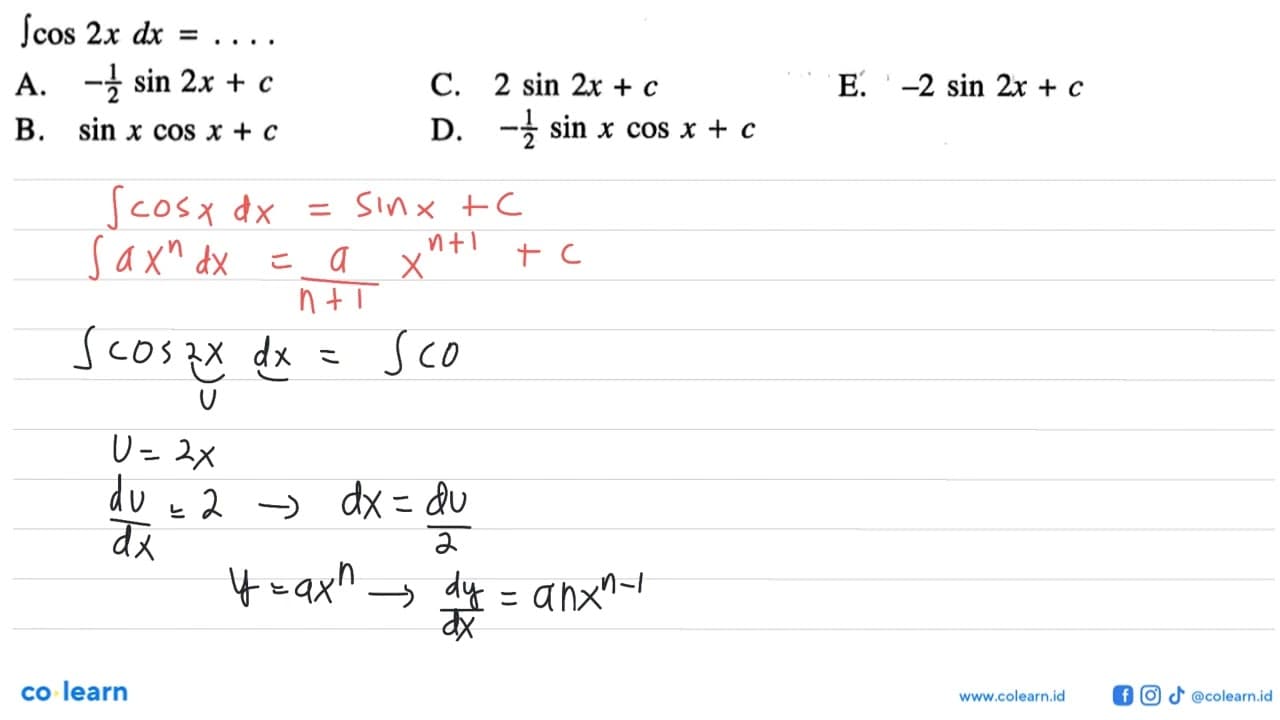 ∫cos 2x dx = . . . .
A. -1/2 sin 2x + c C. 2 sin 2x + c E. -2 sin 2x + c
B. sin x cos x + c D. -1/2 sin x cos x + c
∫cosx dx = sinx + C
∫ax^n dx = a/(n+1) x^(n+1) + C
∫cos 2x dx = ∫co
U
U = 2x
du/dx = 2 → dx = du/2
y = ax^n → dy/dx = anx^(n-1)
co learn
www.colearn.id @colearn.id